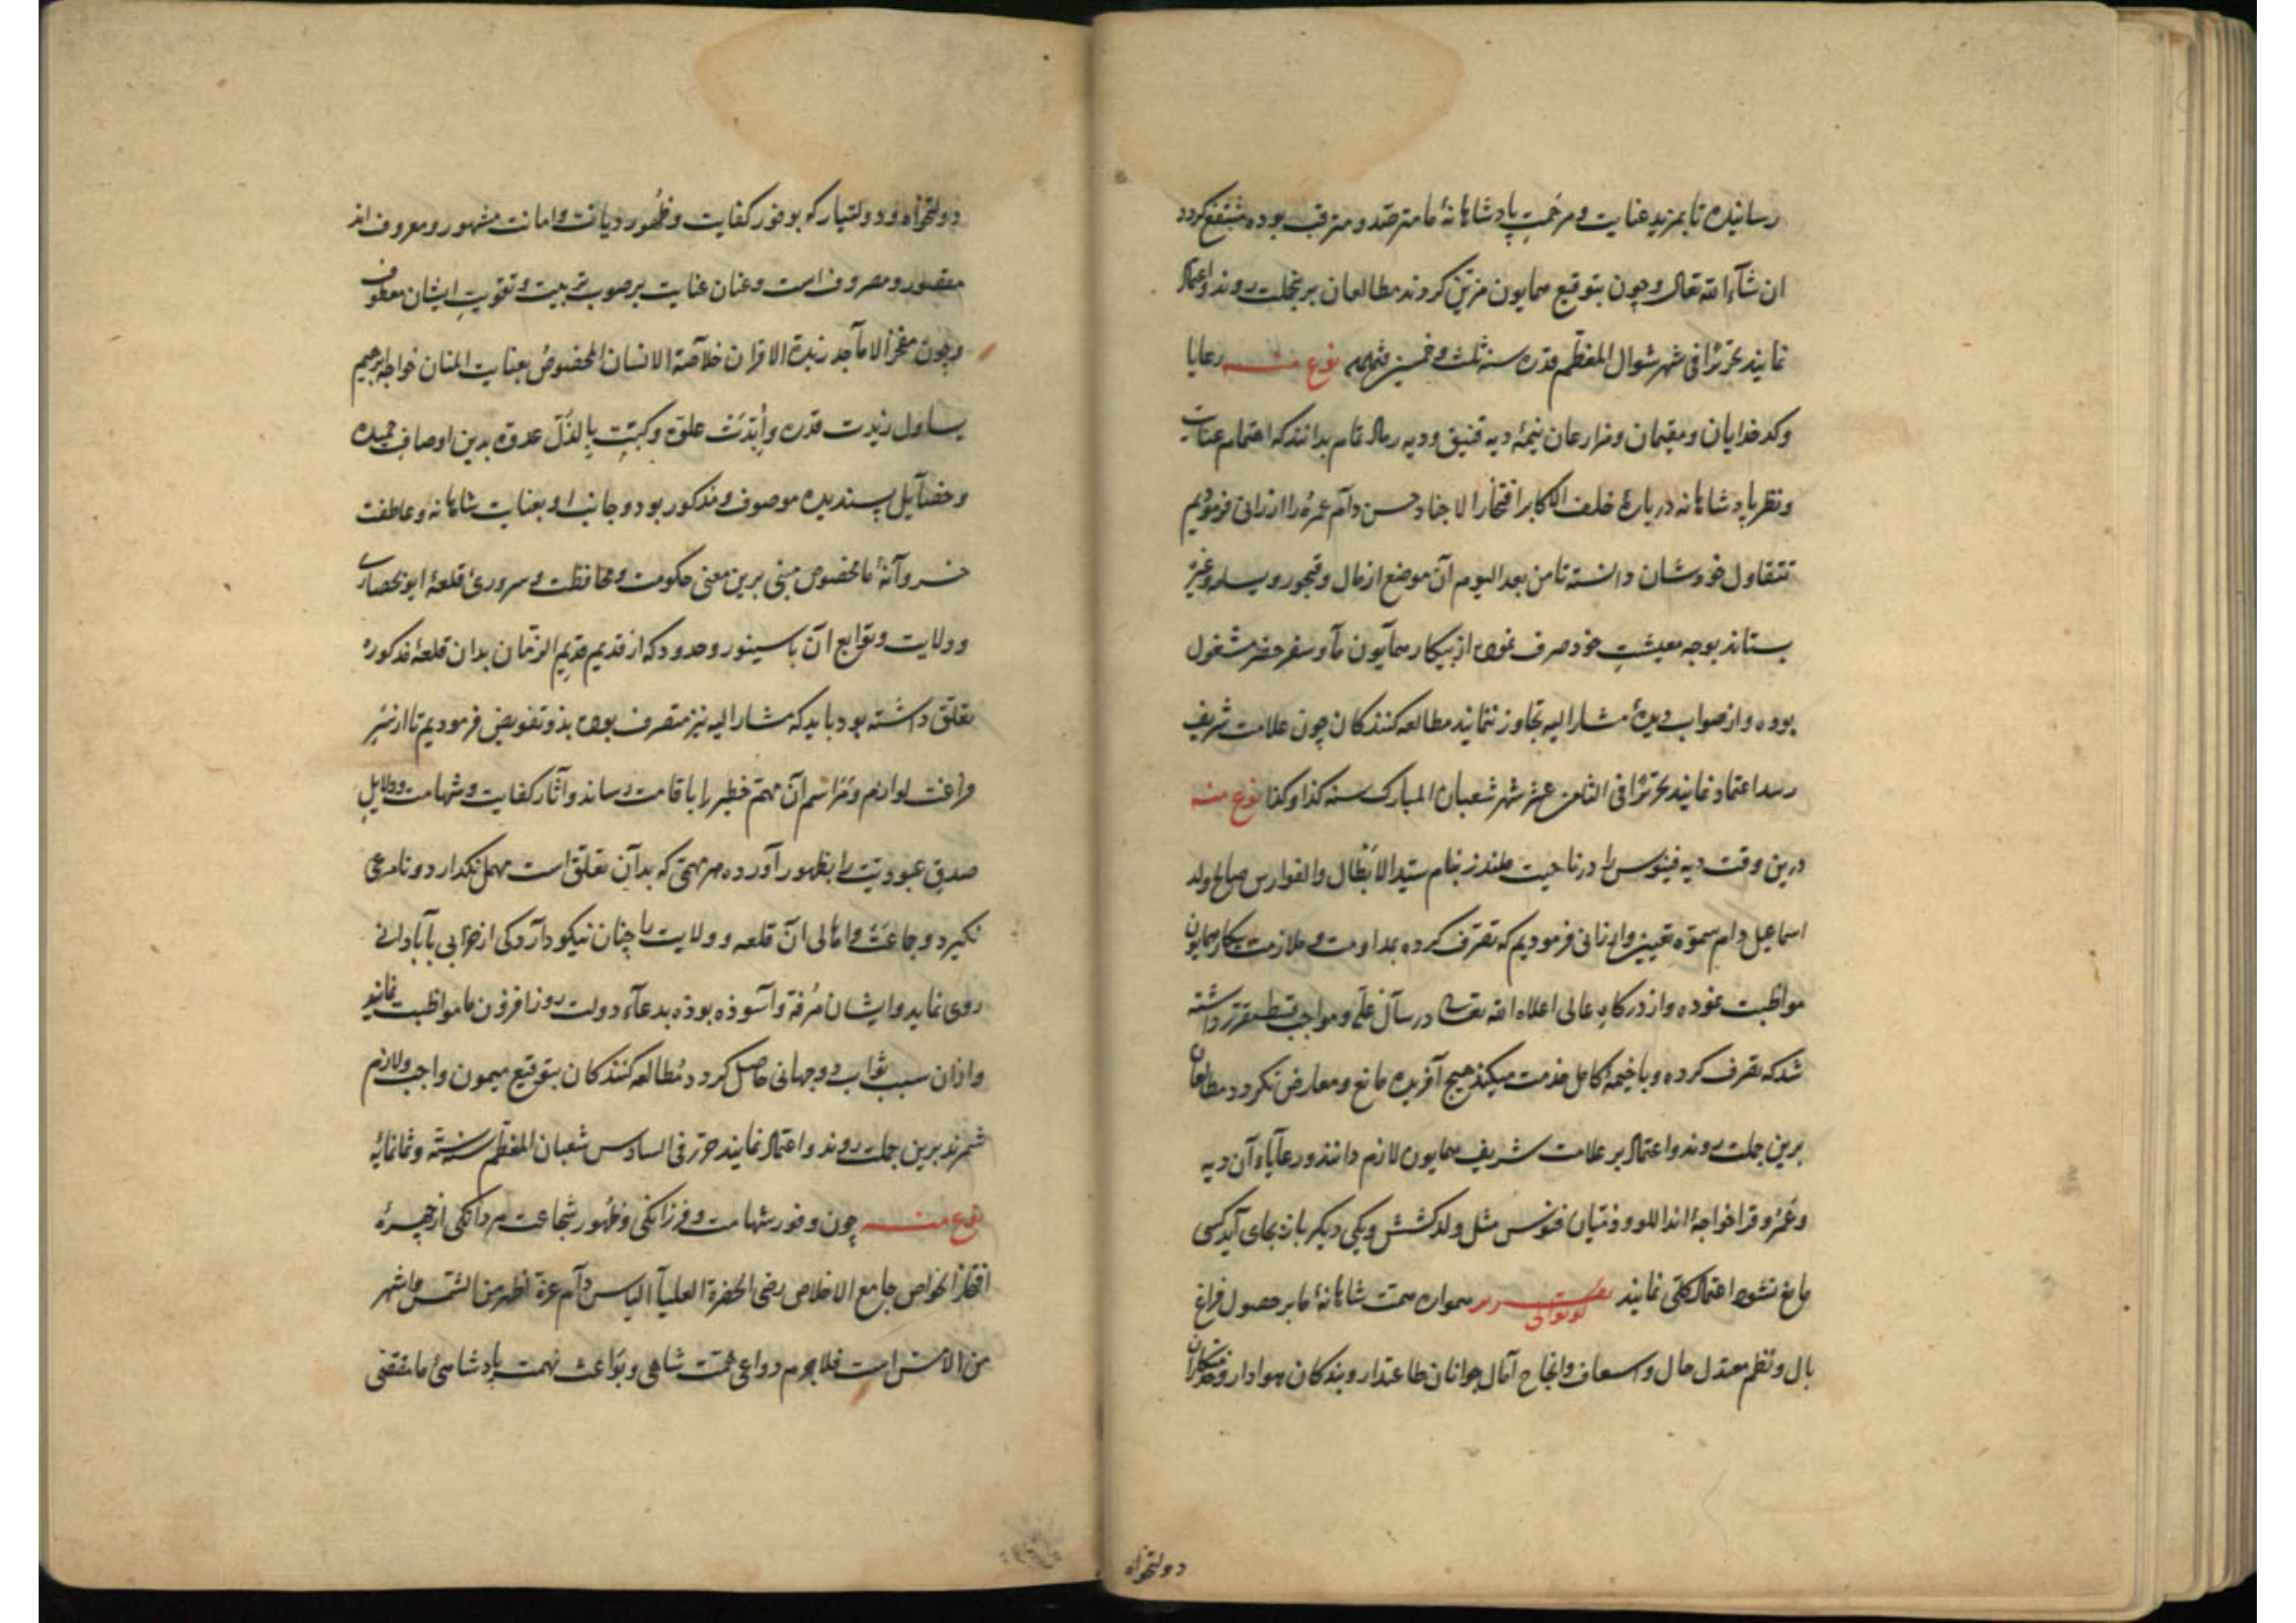 رسانیده تا بمزید عنایت و مرحمت پادشاهانهٔ ما مترصد و مترقب بوده منتفع کردد
ان شآء الله تعالی و چون بتوقیع همایون مزین کردد مطالعان برینجملت روند و اعتماد
نمایند تحریرًا فی شهر شوال المعظم قدره سنه ثلث و خمسین نوع منه رعایا
وکدخدایان و مقیمان و مزارعان نیمهٔ دیه و دیه بدانند که اهتمام عنایت
و نظر پادشاهانه دربارهٔ خلف الاکابر افتخار الاجناد حسن دام عمره را ارزانی فرمودیم
خودشان دانسته تا من بعد الیوم آن موضع از مال و و غیر
بستاند بوجه معیشتِ خود صرف نموده از بیکار همآیون ما و سفر حضر مشغول
بوده و از صواب دیدهٔ مشارالیه تجاوز ننمایند مطالعه کنندکان چون علامت شریف
رسد اعتماد نمایند تحریرًا فی الثامن عشر شهر شعبان المبارک سنه کذا و کذا نوع منه
درین وقت دیه را در ناحیت بنام سید الابطال والفوارس صالح ولد
اسماعیل دام سموّه تعیین و ارزانی فرمودیم که تصرف کرده بمداومت و ملازمت بیکار همایون
مواظبت نموده و از درکاهِ عالی اعلاه الله تعالی و مواجب مقرر داشته
شد که تصرف کرده و با خیمهٔ کامل خدمت میکند هیچ آفریده مانع و معارض نکردد مطالعان
برین جملت روند و اعتماد بر علامت شریف همایون لازم دانند و رعآیاء آن دیه
و قراخواجه و ذمّیان مثل ولد و یکی دیکر باز بجای آید کسی
مانع نشود اعتماد کلّی نمایند تقریر کوتوالی همواره همت شاهانهٔ ما بر حصول فراغ
بال و نظم معدل حال و اسعاف و انجاح آمال جوانان طاعتدار و بندکان هوادار و خدمتکاران
دولتخواه
دولتخواه و دولتیار که بوفور کفایت و ظهور دیانت و امانت مشهور و معروف اند
مقصور و مصروف است و عنان عنایت بر صوب تربیت و تقویتِ ایشان معطوف
و چون مفخر الاماجد زبدة الاقران خلاصة الانسان المخصوص بعنایت المنان خواجه ابرهیم
یساول زیدت قدره و علوّه و بالذلّ عدوّه بدین اوصاف حمیده
و خصآیل پسندیده موصوف و مذکور بود و جانب او بعنایت شاهانه و عاطفت
خسروآنهٔ ما مخصوص مبنی برین معنی حکومت و محافظت و سروریٔ قلعهٔ
و ولایت و توابع آن با سینور و حدود که از قدیم قدیم الزّمان بدان قلعهٔ مذکوره
تعلق داشته بود باید که مشارالیه نیز متصرف بوده بذو تفویض فرمودیم تا از سر
فراغت لوازم و مراسم آن مهمّ خطیر را باقامت رساند و آثار کفایت و شهامت و دلایلِ
صدقِ عبودیّت را بظهور آورده هر مهمّی که بدآن تعلّق است مهمل نکذارد و نامرعی
نکیرد و جماعت و اهالی آن قلعه و ولایت را چنان نیکو دآرد کی از خرابی بآبادانی
روی نماید و ایشان مُرفّه و آسوذه بوذه بدعآء دولت روزافزون ما مواظبت نمایند
و اذان سبب ثواب دوجهانی حاصل کردد مُطالعه کنندکان بتوقیع میمون واجب و لازم
شمرند برین جملت روند و اعتماد نمایند حرّر فی السادس شعبان المعظّم سنه ستّه و ثمانمایٔه
نوع منه چون وفور شهامت و فرزانکی و ظهور شجاعت مردانکی از چهرهٔ
افتخار الخواص جامع الاخلاص رضی الحضرة العلیآ الیاس دآم عزّه اظهر من الشمس و اشهر
من الامس است فلاجرم دواعی همّت شاهی و بواعث نهمت پادشاهیٔ ما مقتضی